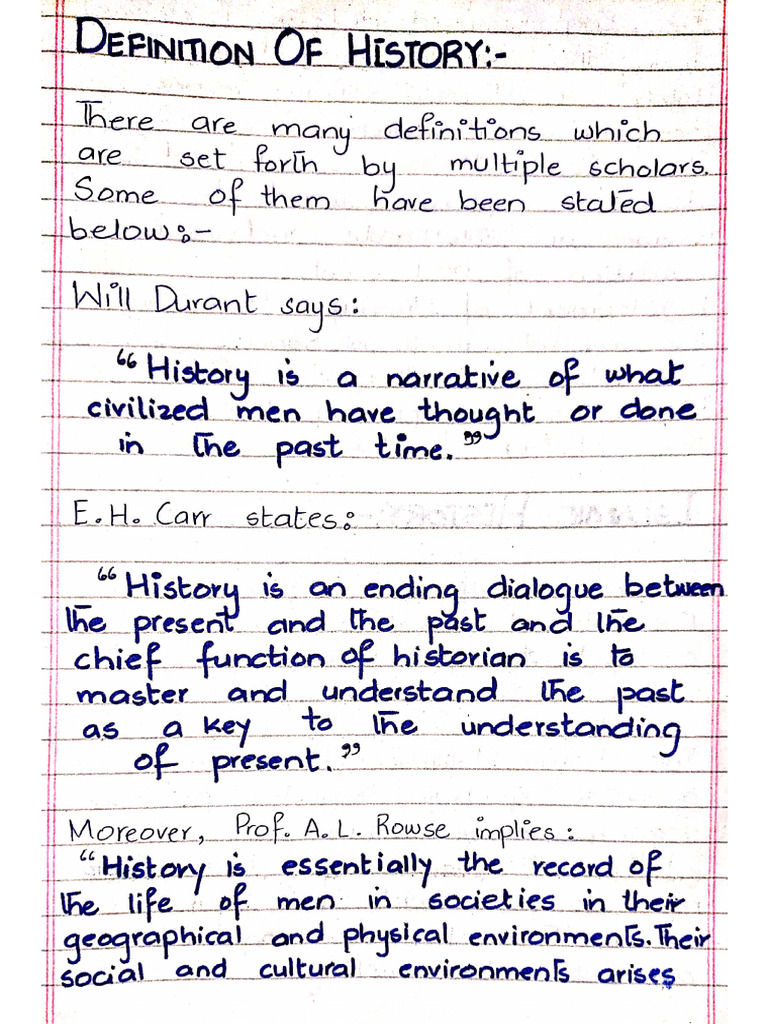 DEFINITION OF HISTORY:-
There are many definitions which
are set forth by multiple scholars.
Some of them have been stated
below:-
Will Durant says:
"History is a narrative of what
civilized men have thought or done
in the past time."
E.H. Carr states:
"History is an ending dialogue between
the present and the past and the
chief function of historian is to
master and understand the past
as a key to the understanding
of present."
Moreover, Prof. A.L. Rowse implies:
"History is essentially the record of
the life of men in societies in their
geographical and physical environments. Their
social and cultural environments arises